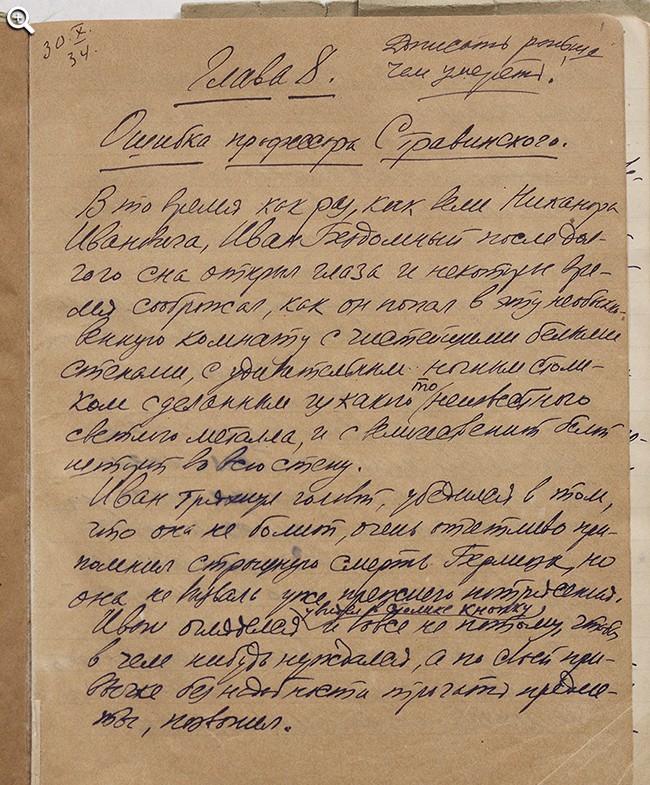 30.X.
34.
Дописать раньше
чем умереть!
Глава 8.
Ошибка профессора Стравинского.
В то время как раз, как вели Никанора
Ивановича, Иван Бездомный после дол-
гого сна открыл глаза и некоторое вре-
мя соображал, как он попал в эту необыкно-
венную комнату с чистейшими белыми
стенами, с удивительным ночным столи-
ком сделанным из какого то неизвестного
светлого металла, и с величественной белой
во всю стену.
Иван тряхнул головой, убедился в том,
что она не болит, очень отчетливо при-
помнил страшную смерть Берлиоза, но
она не вызвала уже прежнего потрясения.
увидел в столике кнопку
Иван огляделся, и вовсе не потому, чтобы
в чем нибудь нуждался, а по своей при-
вычке без надобности трогать предме-
ты, позвонил.